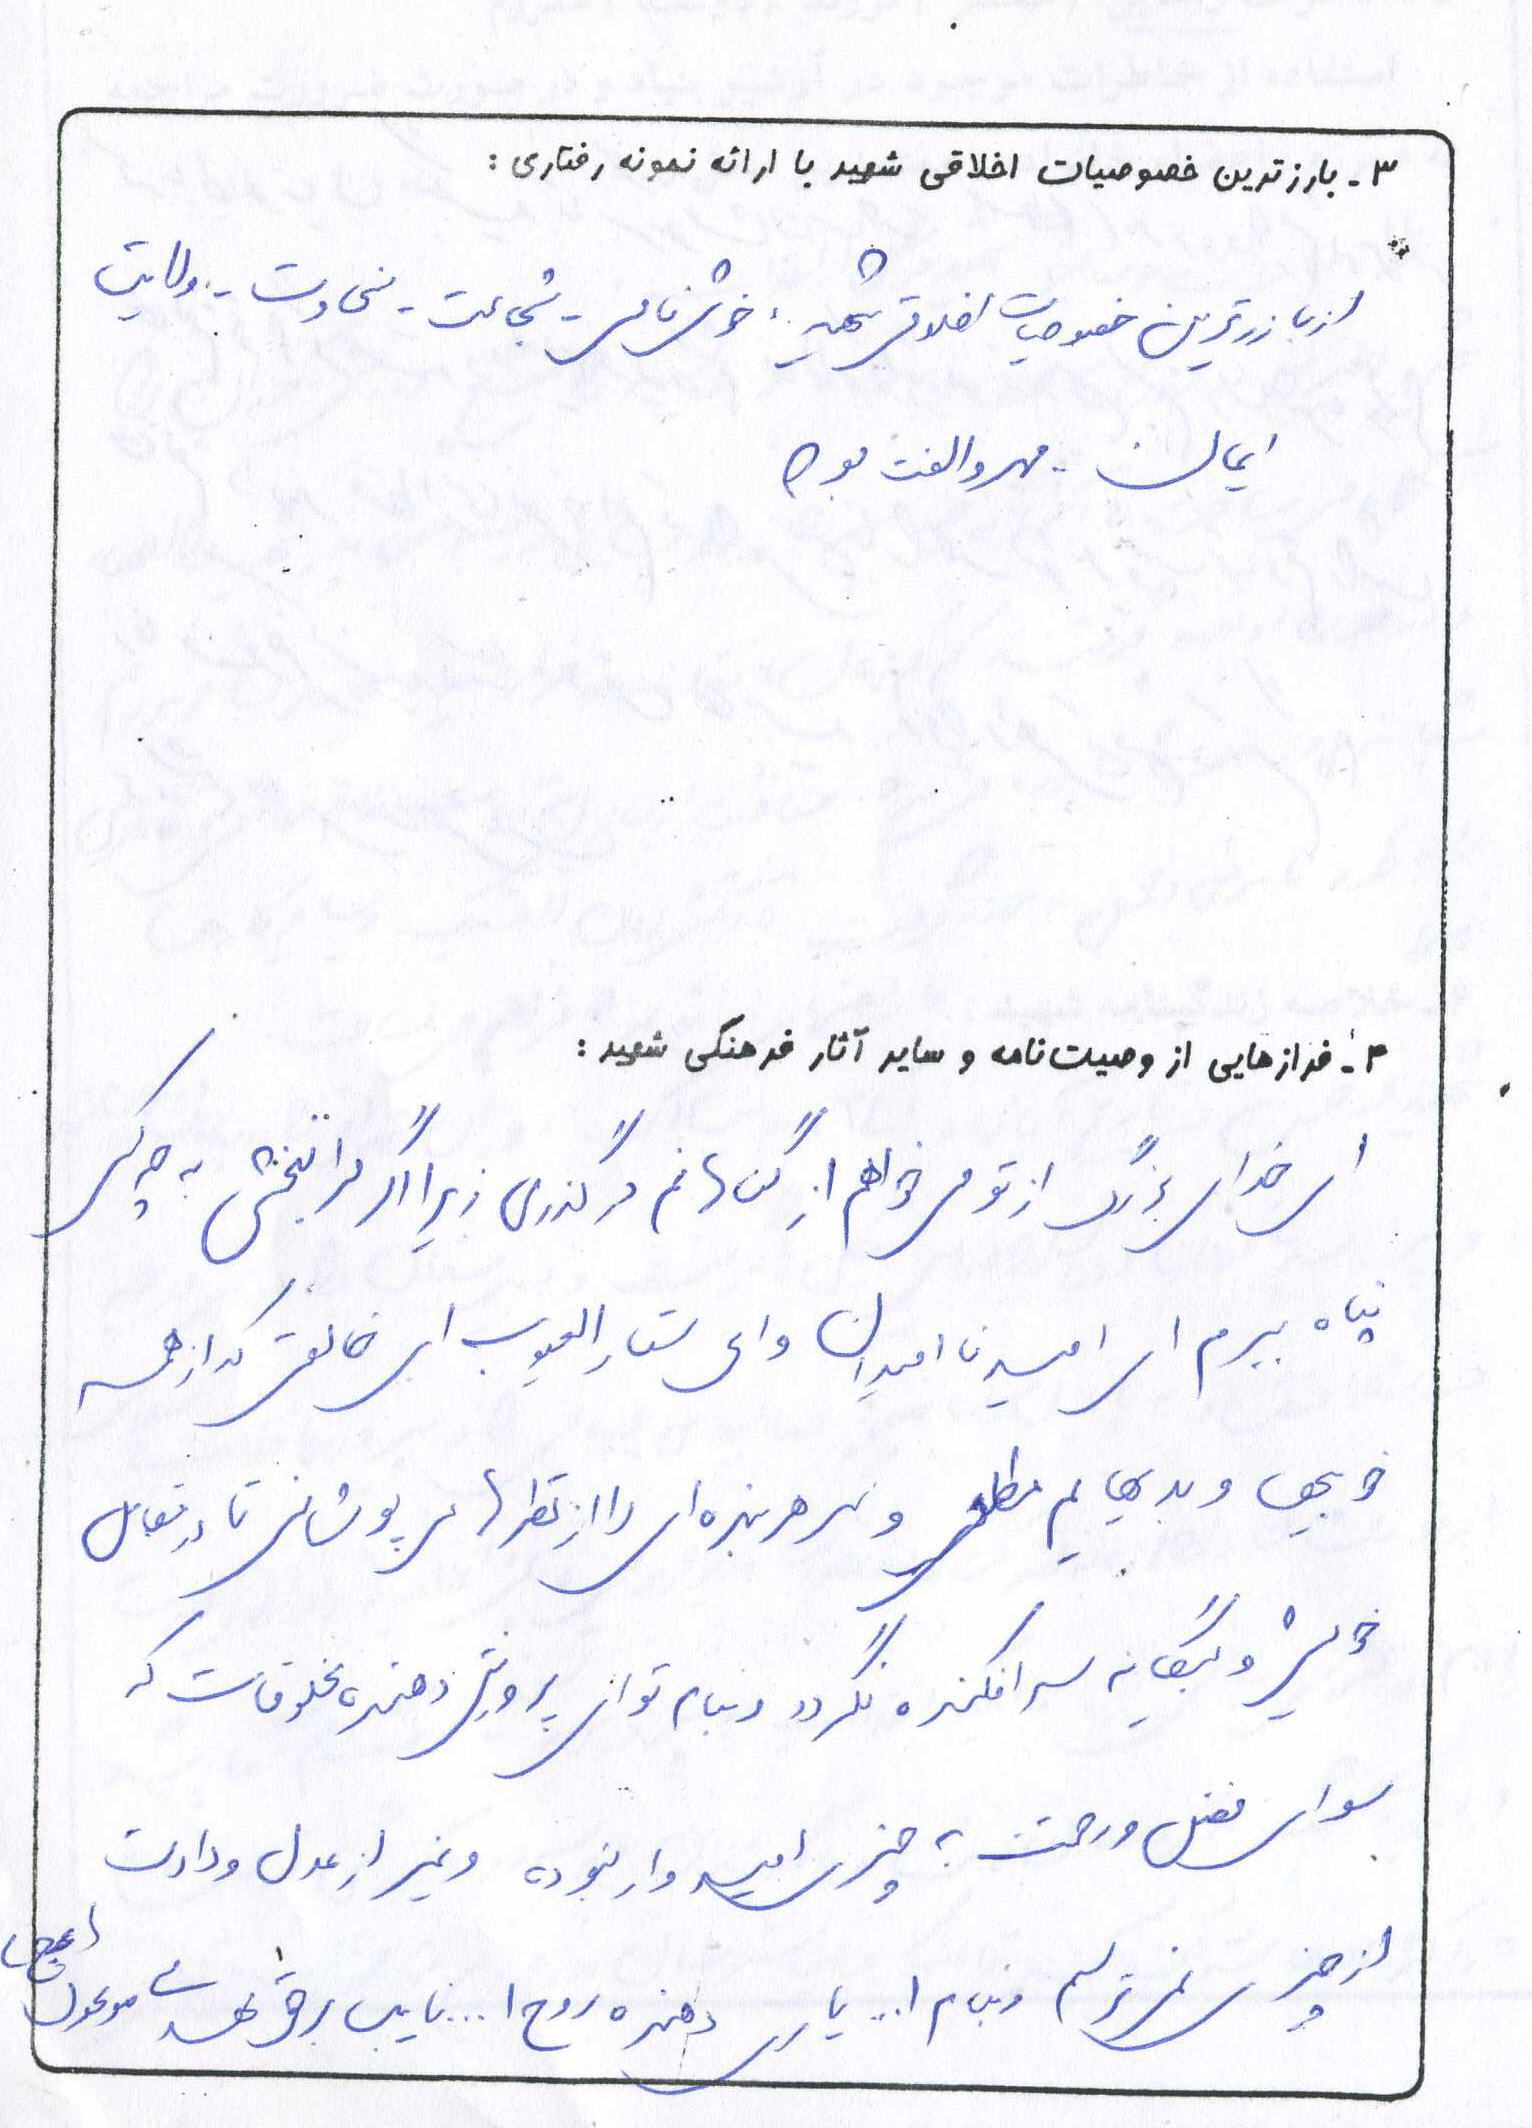 ۳- بارزترین خصوصیات اخلاقی شهید با ارائه نمونه رفتاری:
از بارزترین خصوصیات اخلاقی شهید: خوش نامی - شجاعت - سخاوت - ولایت
ایمان - مهر و الفت بوده
۴- فرازهایی از وصیت‌نامه و سایر آثار فرهنگی شهید:
ای خدای بزرگ از تو می خواهم از گناهانم در گذری زیرا اگر مرا نبخشی به چه کسی
پناه ببرم ای امید ناامیدان و ای ستار العیوب ای خالقی که از همه
خوبیها و بدیهایم مطلعی و سر هر بنده ای را از نظرها می پوشانی تا در مقابل
خویش و بیگانه سرافکنده نگردد و بنام تو ای پرورش دهنده مخلوقات که
سوای فضل و رحمت به چیزی امیدوار نبوده و غیر از عدل و دادت
از چیزی نمی ترسم و بنام ا... یاری دهنده روح ا... نایب برحق مهدی موعود (عج)